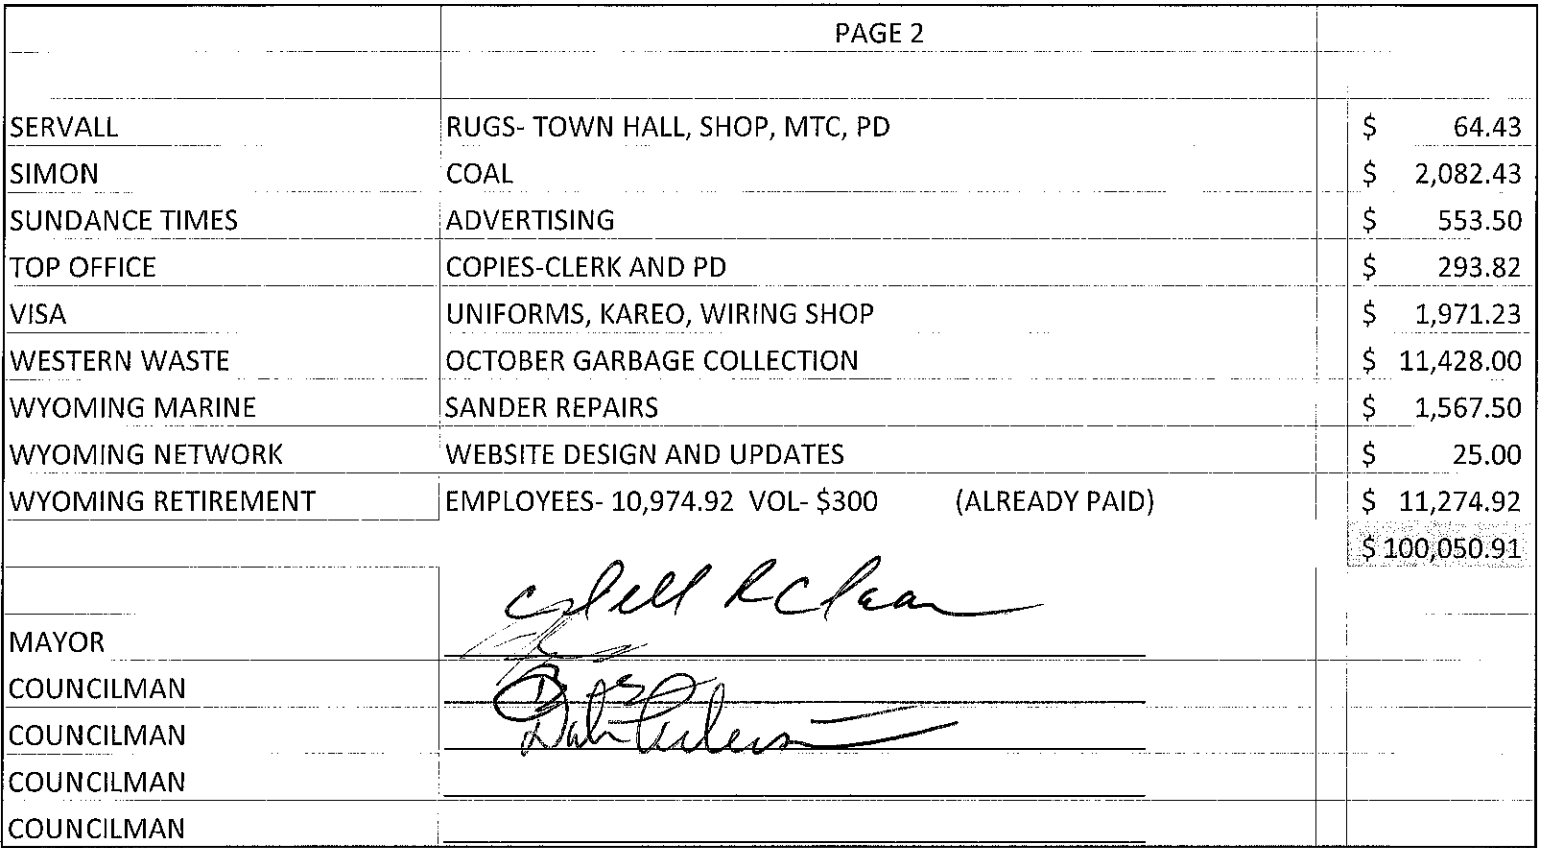 PAGE 2
SERVALL RUGS- TOWN HALL, SHOP, MTC, PD $ 64.43
SIMON COAL $ 2,082.43
SUNDANCE TIMES ADVERTISING $ 553.50
TOP OFFICE COPIES-CLERK AND PD $ 293.82
VISA UNIFORMS, KAREO, WIRING SHOP $ 1,971.23
WESTERN WASTE OCTOBER GARBAGE COLLECTION $ 11,428.00
WYOMING MARINE SANDER REPAIRS $ 1,567.50
WYOMING NETWORK WEBSITE DESIGN AND UPDATES $ 25.00
WYOMING RETIREMENT EMPLOYEES- 10,974.92 VOL- $300 (ALREADY PAID) $ 11,274.92
$ 100,050.91
MAYOR
COUNCILMAN
COUNCILMAN
COUNCILMAN
COUNCILMAN